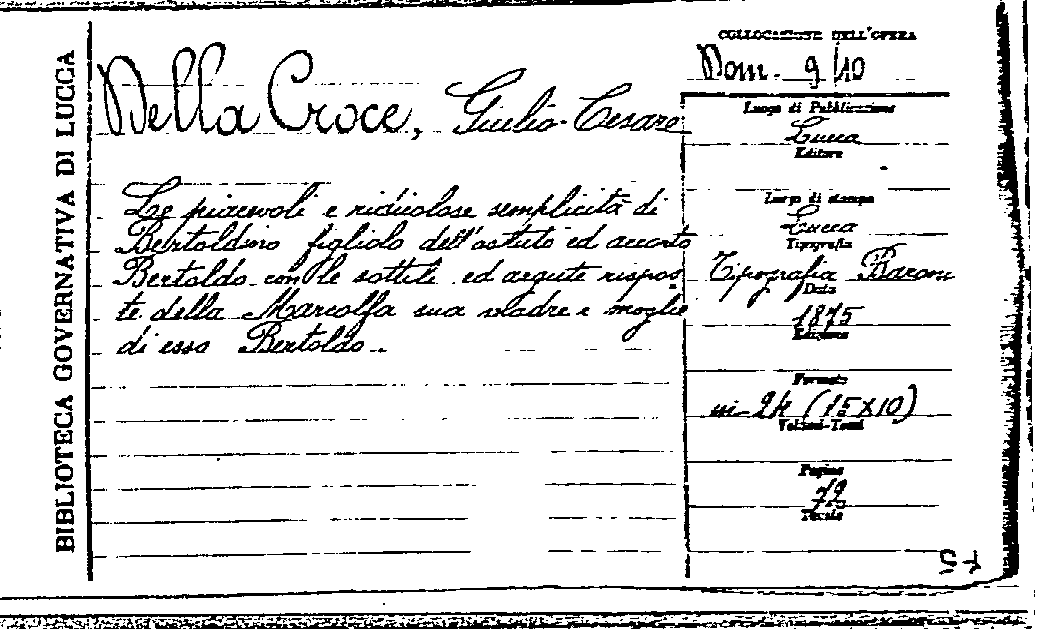 BIBLIOTECA GOVERNATIVA DI LUCCA
Della Croce, Giulio Cesare
Le piacevoli e ridicolose semplicità di
Bertoldino figliolo dell'astuto ed accorto
Bertoldo con le sottili ed argute rispos
te della Marcolfa sua madre e moglie
di esso Bertoldo.
COLLOCAZIONE DELL'OPERA
Dom. 9/10
Luogo di Pubblicazione
Lucca
Editore
Luogo di stampa
Lucca
Tipografia
Tipografia Baroni
Data
1875
Edizione
Formato
in-24 (15x10)
Volumi-Tomi
Pagine
72
Tavole